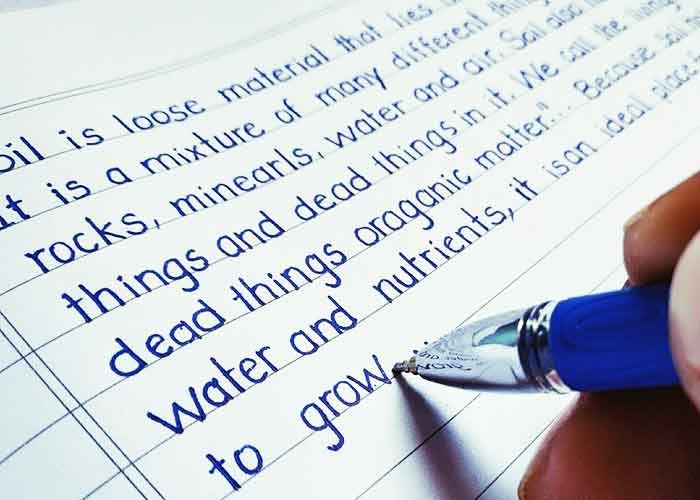 oil is loose material that lies
it is a mixture of many different thing
rocks, minearls, water and air. Soil also
things and dead things in it. We call the
dead things oraganic matter."... Because soil
water and nutrients, it is an ideal place
to grow